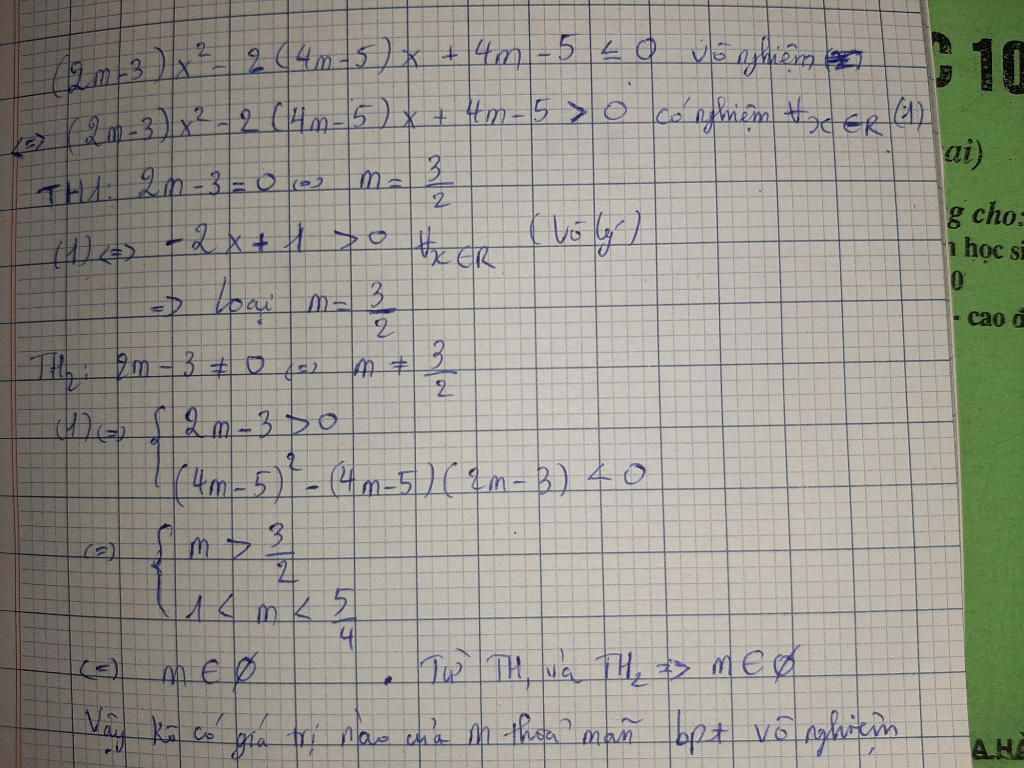 (2m-3)x² - 2(4m-5)x + 4m - 5 ≤ 0 vô nghiệm
<=> (2m-3)x² - 2(4m-5)x + 4m - 5 > 0 có nghiệm ∀x∈R (1)
TH1: 2m-3 = 0 <=> m = 3/2
(1) <=> -2x + 1 > 0 ∀x∈R (Vô lý)
=> Loại m = 3/2
TH2: 2m - 3 ≠ 0 <=> m ≠ 3/2
(1) <=> { 2m - 3 > 0
(4m-5)² - (4m-5)(2m-3) < 0
<=> { m > 3/2
1 < m < 5/4
<=> m ∈ ∅ . Từ TH1 và TH2 => m ∈ ∅
Vậy kô có giá trị nào của m thoả mãn bpt vô nghiệm
C 10
ai)
g cho:
học si
0
- cao đ
A.HÀ